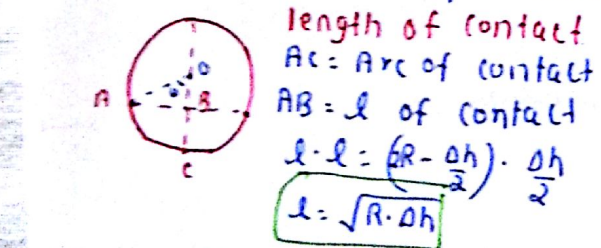 length of contact
O
AC = Arc of contact
θ
A
B
AB = l of contact
l·l = (2R - Δh/2) · Δh/2
C
l = √R·Δh